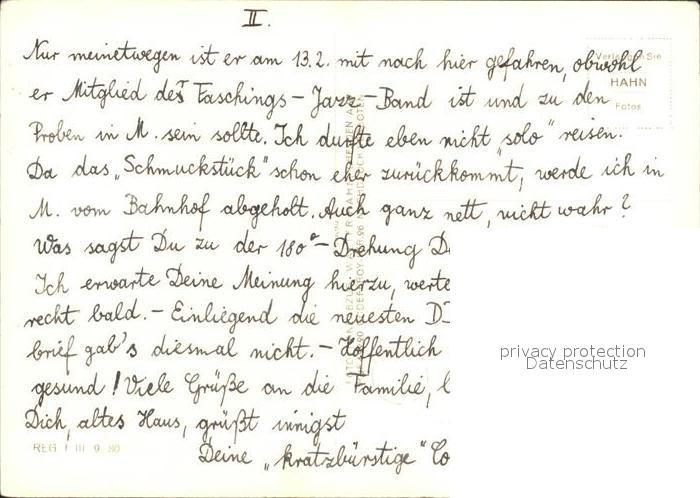 II.
Nur meinetwegen ist er am 13.2. mit nach hier gefahren, obwohl
er Mitglied der Faschings-Jazz-Band ist und zu den
Proben in M. sein sollte. Ich durfte eben nicht „solo" reisen.
Da das „Schmuckstück" schon eher zurückkommt, werde ich in
M. vom Bahnhof abgeholt. Auch ganz nett, nicht wahr?
Was sagst Du zu der 180°-Drehung
Ich erwarte Deine Meinung hierzu,
recht bald. - Einliegend die neuesten
brief gab's diesmal nicht. - Hoffentlich
gesund! Viele Grüße an die Familie,
Dich, altes Haus, grüßt innigst
Deine „kratzbürstige"
HAHN
Fotos
REG I III 9 80
privacy protection
Datenschutz